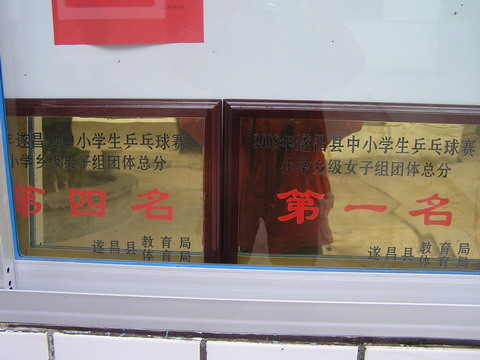 年遂昌县中小学生乒乓球赛
小学乡级男子组团体总分
第四名
遂昌县 教育局
体育局
2008年遂昌县中小学生乒乓球赛
小学乡级女子组团体总分
第一名
遂昌县 教育局
体育局